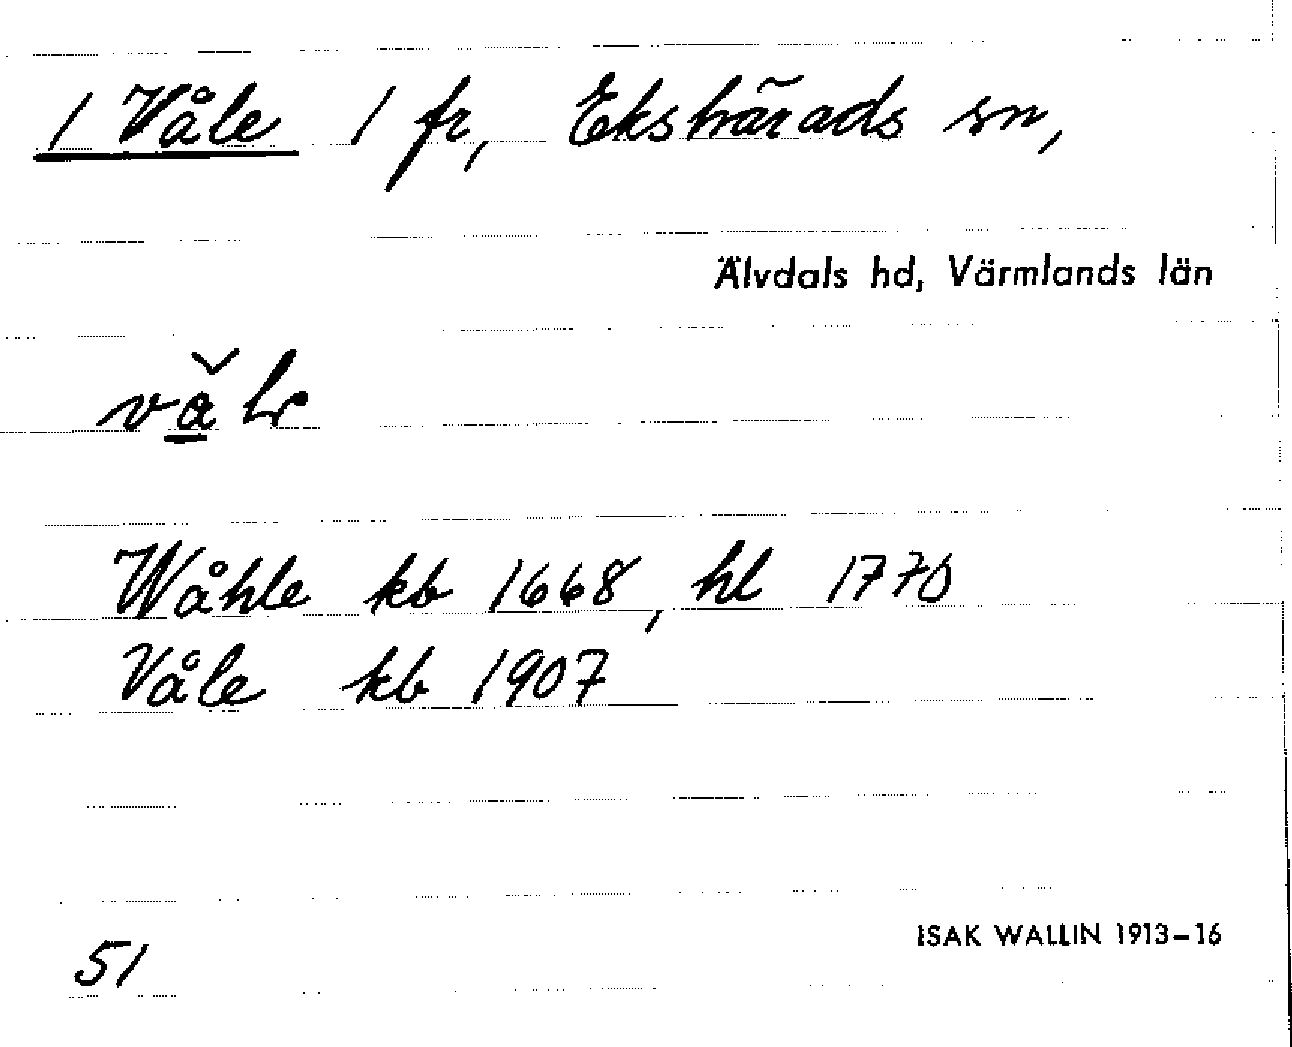 1 Våle 1 fr, Ekshärads sn,
Älvdals hd, Värmlands län
Wåhle kb 1668, hl 1770
Våle kb 1907
51
ISAK WALLIN 1913–16